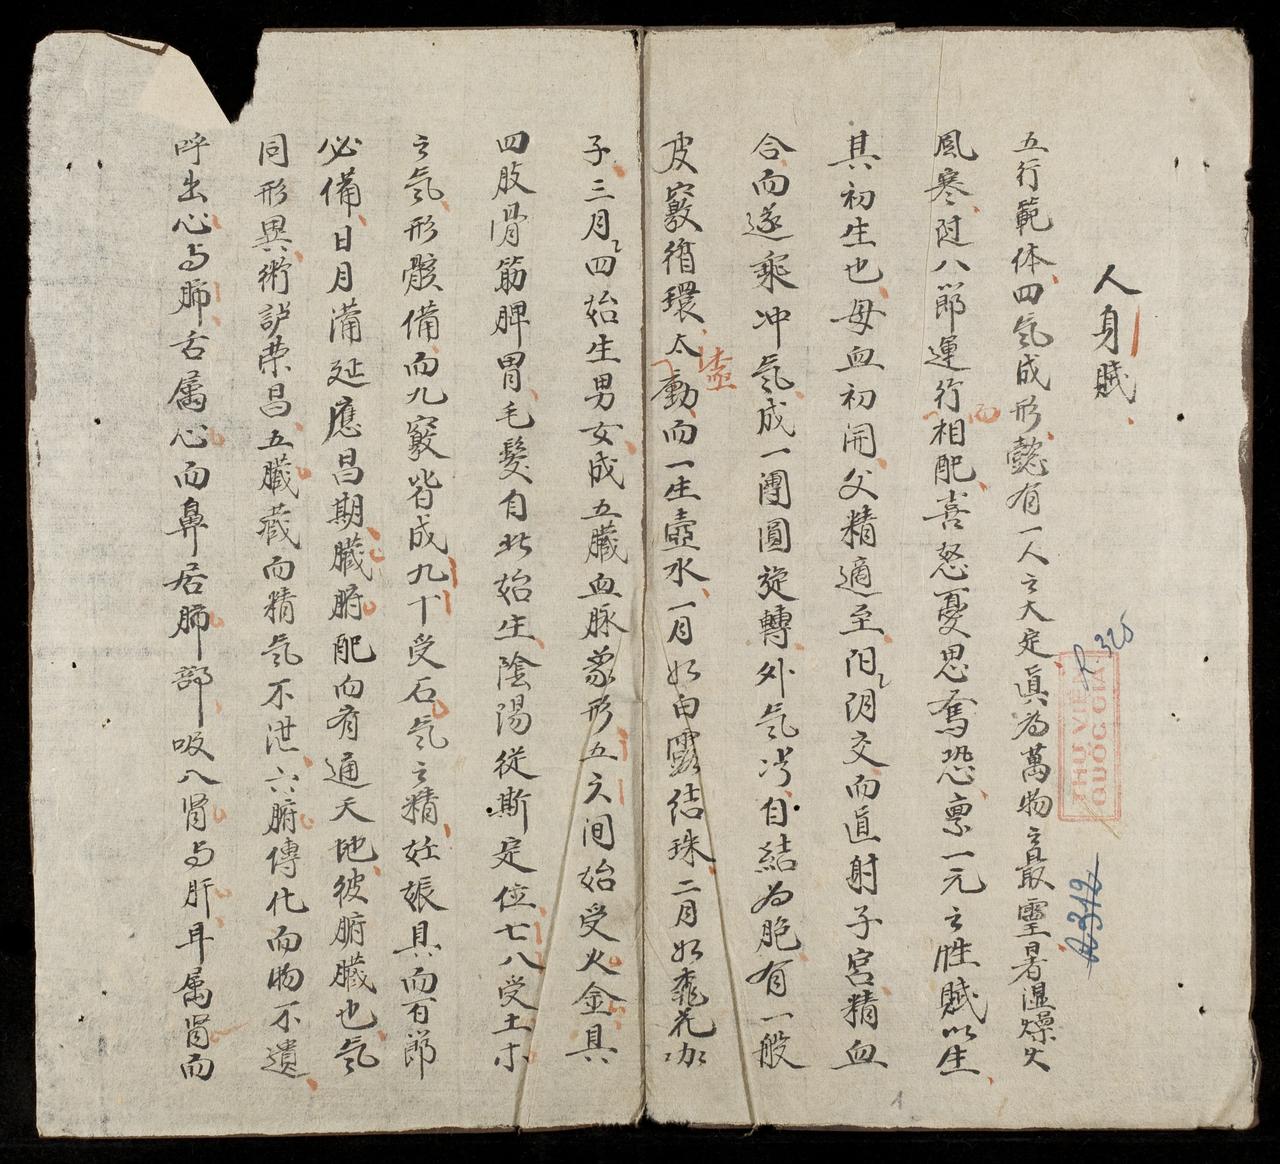 人身賦
五行範体四氣成形懿有一人之大定眞为萬物之最霊暑濕燥火
風寒过八節運行相配喜怒憂思奪恐禀一元之性賦以生
而
具初生也母血初開父精適至阳阴交而直射子宮精血
合而遂乘冲氣成一團圓旋轉外氣吹自結为胞有一般
皮竅循環太動而一生壺水一月如白露结珠二月如桃花
壺
子三月四始生男女成五臟血脉象形五六间始受火金具
四肢骨筋脾胃毛髮自此始生陰陽從斯定位七八受土木
之氣形骸備而九竅皆成九十受石氣之精妊娠具而百節
必備日月滿延應昌期臟腑配而有通天地彼腑臟也氣
同形異術護荣昌五臟藏而精氣不泄六腑傳化而物不遺
呼出心与肺舌属心而鼻居肺部吸入肾与肝耳属肾而
THƯ VIỆN
QUỐC GIA
R.325
R.312
1